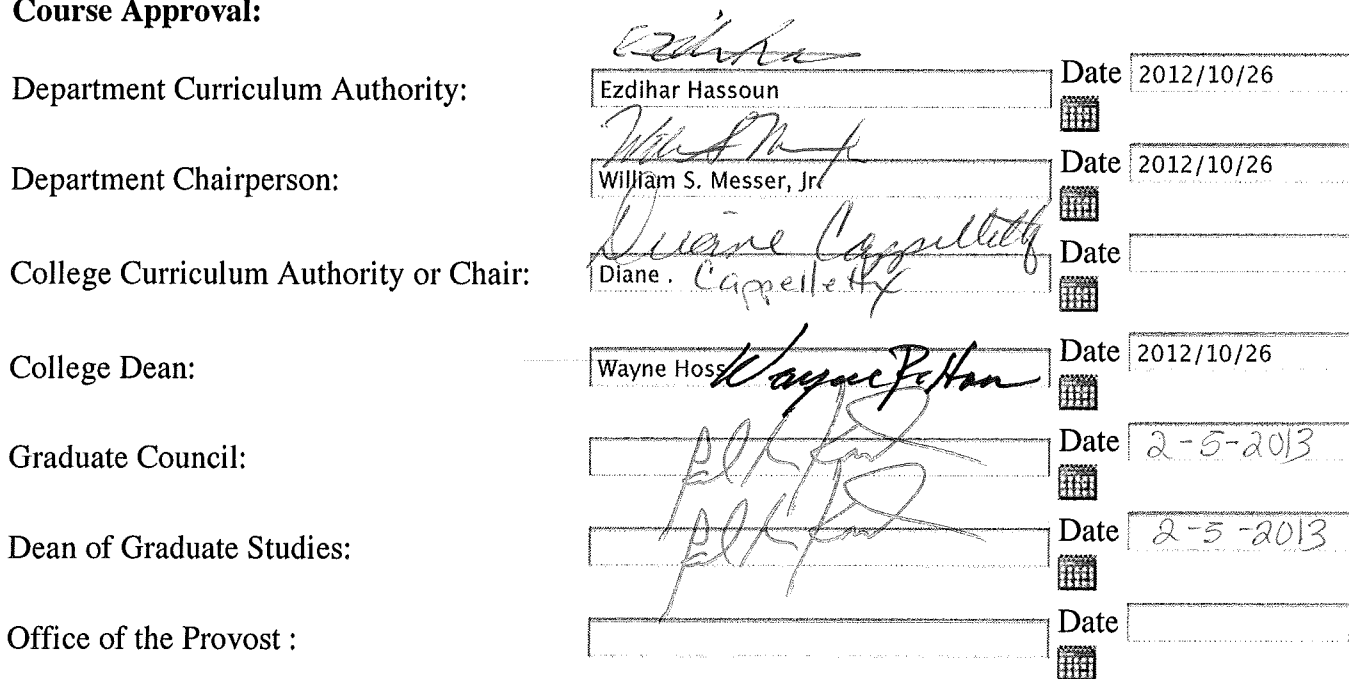 Course Approval:
Department Curriculum Authority: Ezdihar Hassoun Date 2012/10/26
Department Chairperson: William S. Messer, Jr. Date 2012/10/26
Diane Cappelletty
College Curriculum Authority or Chair: Diane . Cappelletty Date
College Dean: Wayne Hoss Date 2012/10/26
Graduate Council: Date 2-5-2013
Dean of Graduate Studies: Date 2-5-2013
Office of the Provost : Date